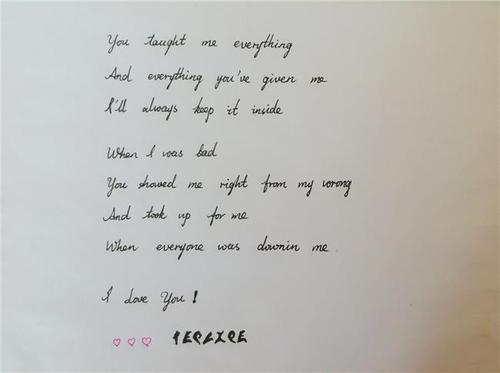 You taught me everything
And everything you've given me
I'll always keep it inside
When I was bad
You showed me right from my wrong
And took up for me
When everyone was downin me
I love You!